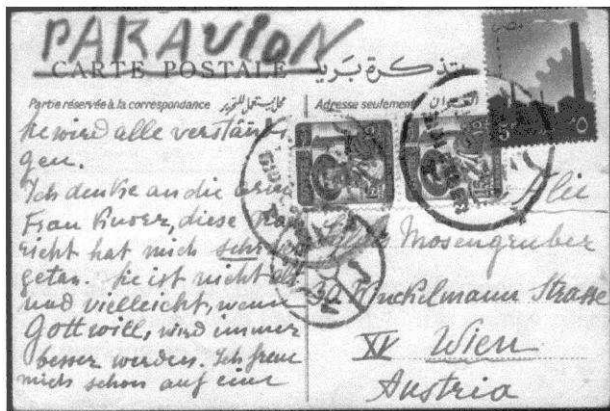 PAR AVION
CARTE POSTALE تذكرة بريد
Partie réservée à la correspondance
Adresse seulement العنوان
sie wird alle verständi-
gen.
Ich denke an die arme
Frau diese
richt hat mich sehr
getan. Sie ist nicht
und vielleicht, wenn
Gott will, wird immer
besser werden. Ich freue
mich schon auf eine
مصر
Mosengruber
30 Winckelmann Strasse
XV Wien
Austria